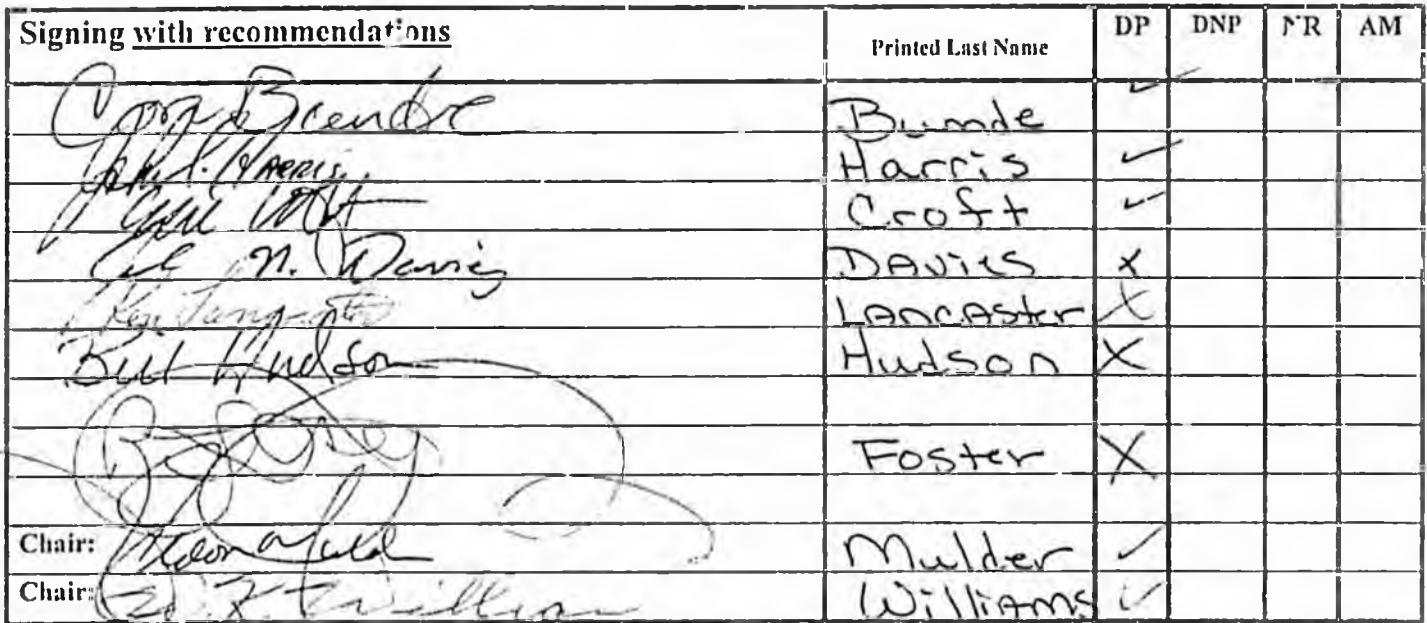 Signing with recommendations Printed Last Name DP DNP NR AM
Bunde ✓
John L. Harris Harris ✓
Croft ✓
N. Davies DAVIES X
LANCASter X
Bill Hudson Hudson X
Foster X
Chair: Mulder ✓
Chair: Williams Williams ✓